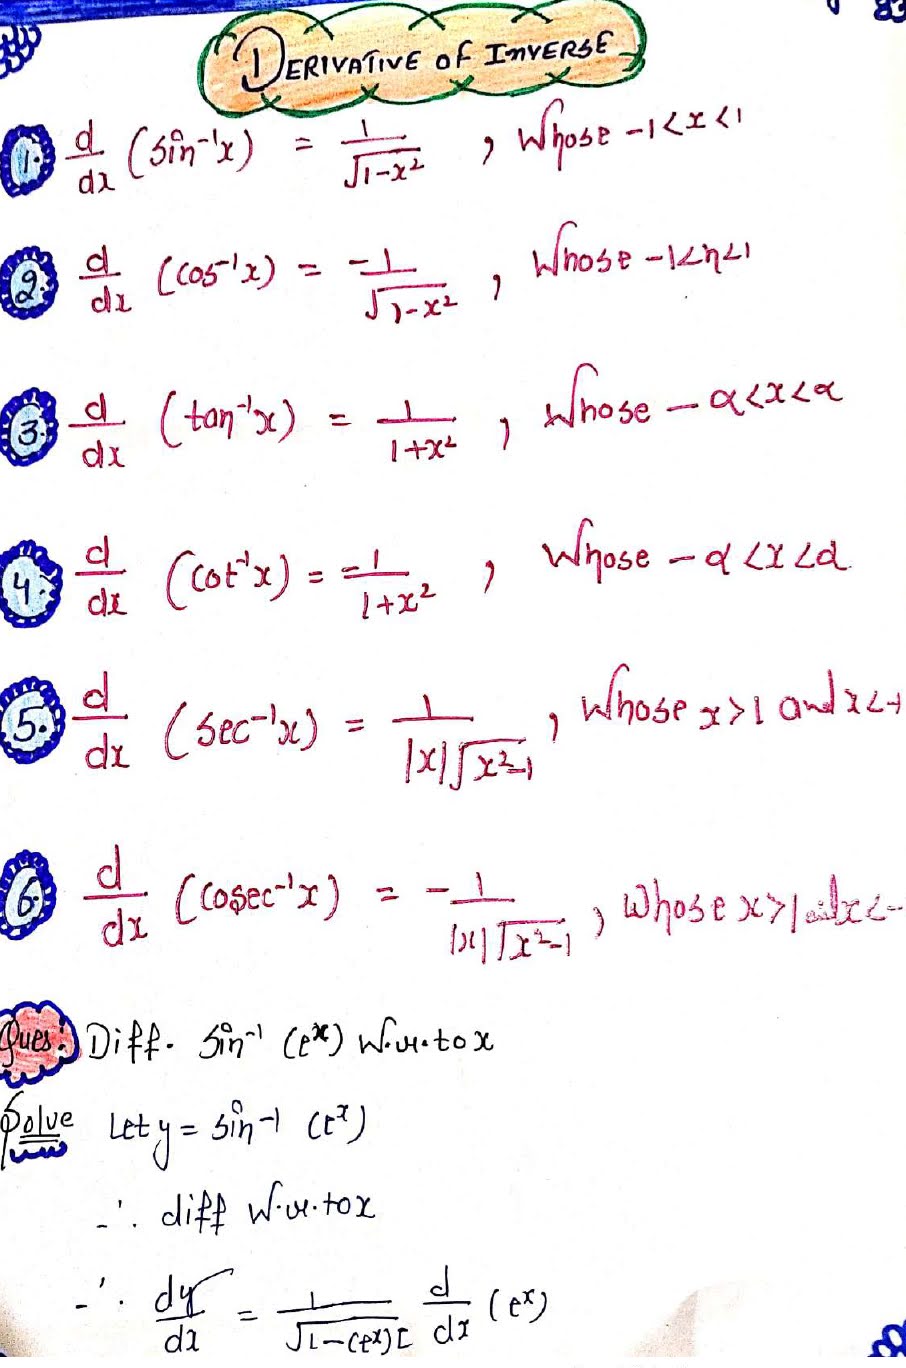 DERIVATIVE OF INVERSE
1. d/dx (sin⁻¹x) = 1/√1-x² , Whose -1<x<1
2. d/dx (cos⁻¹x) = -1/√1-x² , Whose -1<x<1
3. d/dx (tan⁻¹x) = 1/1+x² , Whose -α<x<α
4. d/dx (cot⁻¹x) = -1/1+x² , Whose -α<x<α
5. d/dx (sec⁻¹x) = 1/|x|√x²-1 , Whose x>1 and x<-1
6. d/dx (cosec⁻¹x) = -1/|x|√x²-1 , Whose x>1 and x<-
Ques: Diff. sin⁻¹ (eˣ) w.r.to x
Solve Let y = sin⁻¹ (eˣ)
∴ diff w.r.to x
∴ dy/dx = 1/√1-(eˣ)² d/dx (eˣ)